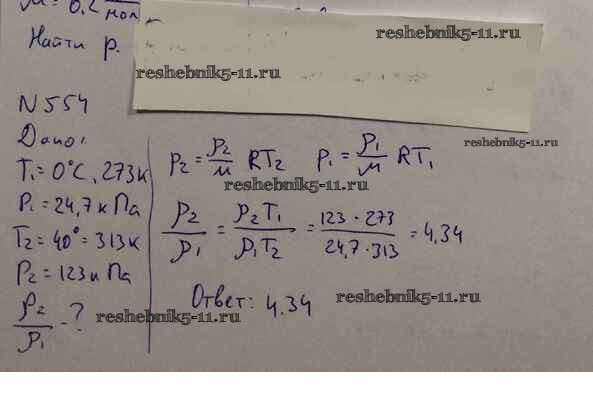 Найти ρ.
reshebnik5-11.ru
reshebnik5-11.ru
N554
Дано:
T₁=0°C, 273к
P₁=24,7 кПа
T₂=40°=313к
P₂=123кПа
ρ₂/ρ₁ - ?
P₂ = ρ₂/M RT₂ P₁ = ρ₁/M RT₁
reshebnik5-11.ru
reshebnik5-11.ru
ρ₂/ρ₁ = P₂T₁/P₁T₂ = 123·273/24,7·313 = 4,34
Ответ: 4,34
reshebnik5-11.ru
reshebnik5-11.ru